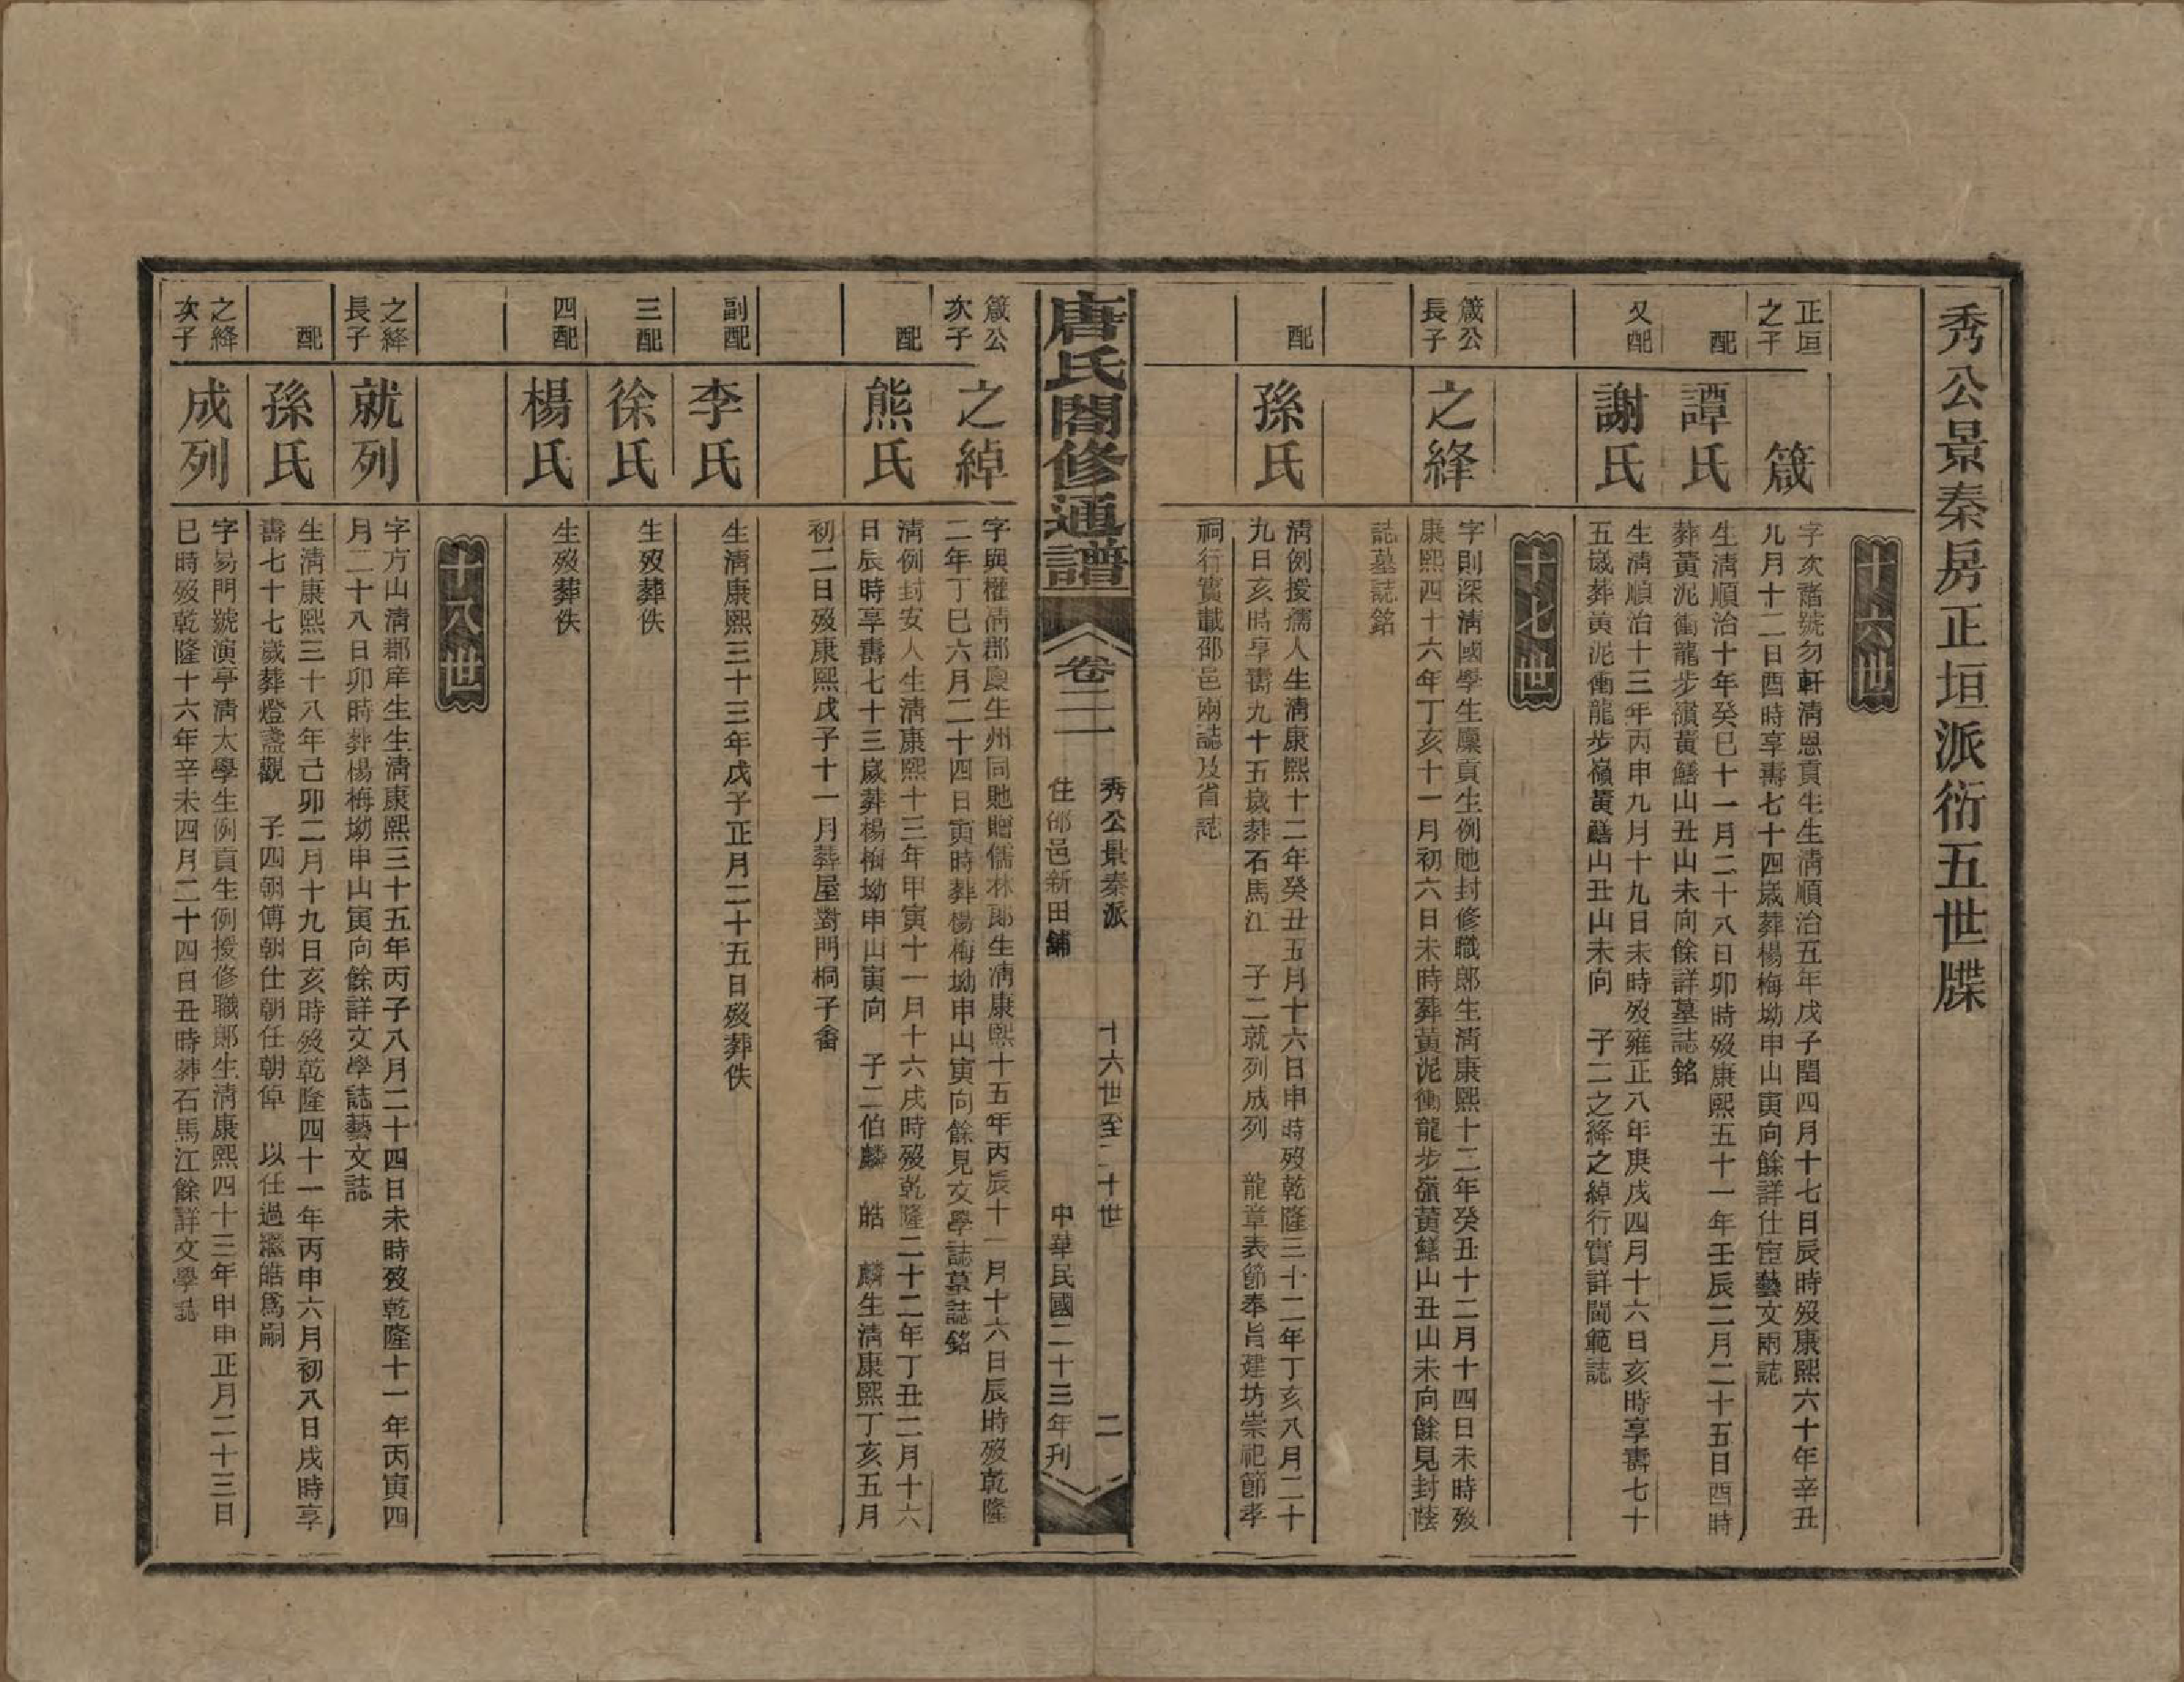 秀公景秦房正垣派衍五世牒
十六世
正垣
之子
箴
字次藷號勿軒清恩貢生生清順治五年戊子閏四月十七日辰時歿康熙六十年辛丑
九月十二日酉時享壽七十四歲葬楊梅坳申山寅向餘詳仕宦藝文兩誌
配
譚氏
生清順治十年癸巳十一月二十八日卯時歿康熙五十一年壬辰二月二十五日酉時
葬黃泥衝龍步嶺黃鱔山丑山未向餘詳墓誌銘
又配
謝氏
生清順治十三年丙申九月十九日未時歿雍正八年庚戌四月十六日亥時享壽七十
五歲葬黃泥衝龍步嶺黃鱔山丑山未向 子二之絳之綽行實詳閫範誌
十七世
箴公
長子
之絳
字則深清國學生廩貢生例貤封修職郎生清康熙十二年癸丑十二月十四日未時歿
康熙四十六年丁亥十一月初六日未時葬黃泥衝龍步嶺黃鱔山丑山未向餘見封蔭
誌墓誌銘
配
孫氏
清例授孺人生清康熙十二年癸丑五月十六日申時歿乾隆三十二年丁亥八月二十
九日亥時享壽九十五歲葬石馬江 子二就列成列 龍章表節奉旨建坊崇祀節孝
祠行實載邵邑兩誌及省誌
唐氏閤修通譜
卷二二
秀公景秦派 十六世至二十世 二
住邵邑新田鋪 中華民國二十三年刊
箴公
次子
之綽
字與權清郡廩生州同貤贈儒林郎生清康熙十五年丙辰十一月十六日辰時歿乾隆
二年丁巳六月二十四日寅時葬楊梅坳申山寅向餘見文學誌墓誌銘
配
熊氏
清例封安人生清康熙十三年甲寅十一月十六戌時歿乾隆二十二年丁丑二月十六
日辰時享壽七十三歲葬楊梅坳申山寅向 子二伯麟 皓 麟生清康熙丁亥五月
初二日歿康熙戊子十一月葬屋對門桐子畬
副配
李氏
生清康熙三十三年戊子正月二十五日歿葬佚
三配
徐氏
生歿葬佚
四配
楊氏
生歿葬佚
十八世
之絳
長子
就列
字方山清郡庠生生清康熙三十五年丙子八月二十四日未時歿乾隆十一年丙寅四
月二十八日卯時葬楊梅坳申山寅向餘詳文學誌藝文誌
配
孫氏
生清康熙三十八年己卯二月十九日亥時歿乾隆四十一年丙申六月初八日戌時享
壽七十七歲葬燈盞觀 子四朝傅朝仕朝任朝倬 以任過繼皓爲嗣
之絳
次子
成列
字易門號演亭清太學生例貢生例授修職郎生清康熙四十三年甲申正月二十三日
巳時歿乾隆十六年辛未四月二十四日丑時葬石馬江餘詳文學誌